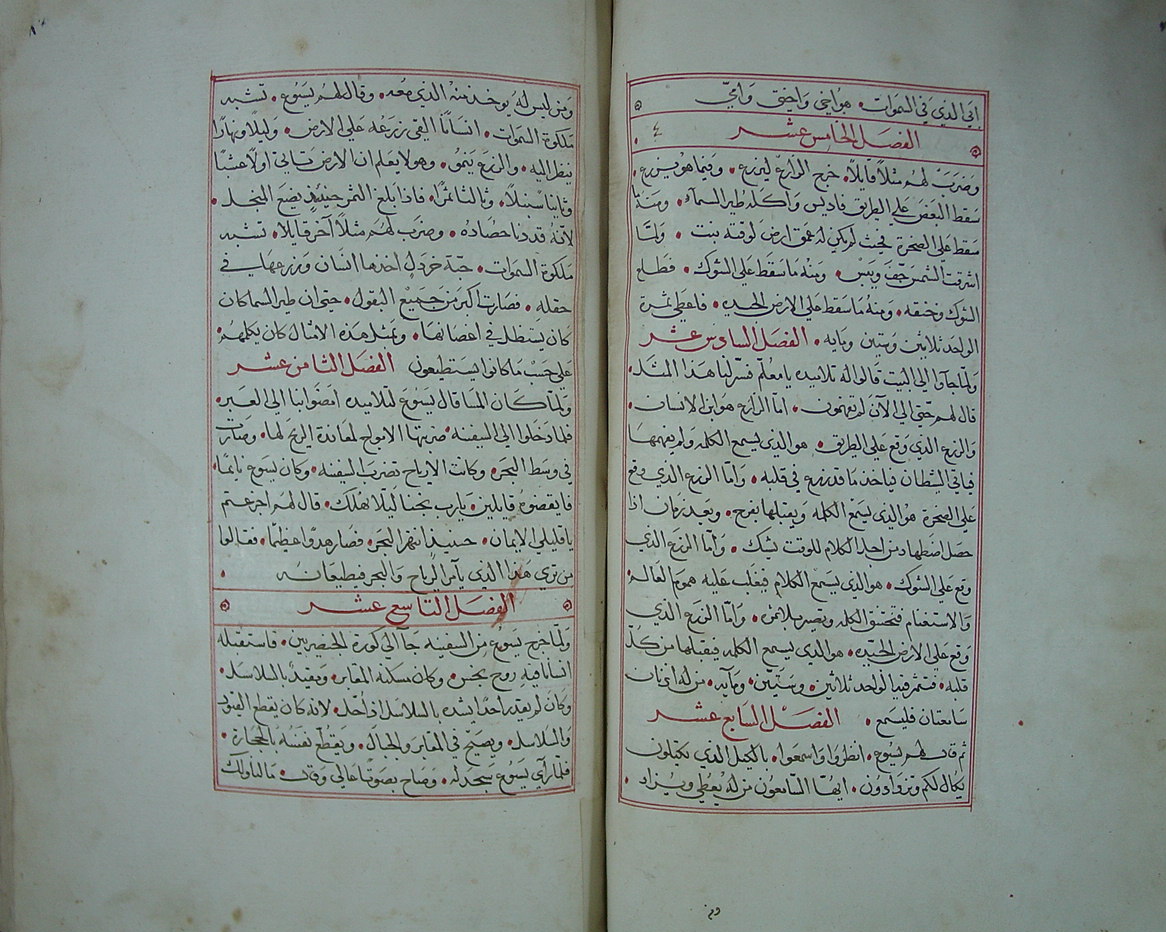 ابي الذي في السموات. هو اخي واختي وامي
الفصل الخامس عشر ٤
وضرب لهم مثلاً قايلاً. خرج الزارع ليزرع. وفيما هو يزرع.
سقط البعض على الطريق فاديس وأكله طير السمآء. ومنهُ
سقط على الصخرة بحيث لم يكن له عمق ارض لوقته نبت. ولمّا
اشرقت الشمس جف ويبس. ومنه ما سقط على الشوك. فطلع
الشوك وخنقه. ومنهُ ما سقط على الارض الجيده. فاعطى ثمرة
الواحد ثلاثين وستين ومايه. الفصل السادس عشر
ولما جآوا الى البيت قالوا له تلاميده يا معلم فسّر لنا هذا المثل.
قال لهم حتى الى الآن لم تفهمون. امّا الزارع هو ابن الانسان.
والزرع الدى وقع على الطريق. هو الدى يسمع الكلمه ولم يفهمها
فياتي الشطان فياخد ما قد زرع في قلبه. وامّا الزرع الدى وقع
على الصخرة هو الدى يسمع الكلمه ويقبلها بفرح. وبعد زمان ادا
حصل اضطهاد من اجل الكلام للوقت يشك. وأمّا الزرع الدى
وقع على الشوك. هو الدى يسمع الكلام فيغلب عليه هموم العالم
والاستغنام فتخنق الكلمه وتصير بلا ثمر. وامّا الزرع الدى
وقع على الارض الجيّده. هو الدى يسمع الكلمه فيقبلها من كلّ
قلبه. فتثمر فيه الواحد ثلاثين. وستّين. ومايه. من له ادنان
سامعتان فليسمع. الفصل السابع عشر
ثم قال لهم يسوع. انظروا واسمعوا. بالكيل الدي تكيلون
يكال لكم وتزدادون. ايهّا السّامعون من له يُعطى ويُزاد
ومن ليس له يوخد منهُ الذي معه. وقال لهم يسوع. تشبه
ملكوة السموات. انسانًا القى زرعه على الارض. وليلاً ونهارًا
ينظر اليه. والزرع ينمو. وهو لا يعلم ان الارض تاتي اولاً عشبًا
وثانيًا سنبلاً. وثالثا ثمرًا. فاذا بلغ الثمر حينئذٍ يضع المنجل.
لانّهُ قد دنا حصاده. وضرب لهم مثلاً آخر قايلاً. تشبه
ملكوة السموات. حبّة خردل اخدها انسان وزرعها في
حقله. فصارت اكبر من جميع البقول. حتى ان طير السما كان
كان يستظل في اغصانها. وبمثل هذه الامثال كان يكلمهم
على حسب ما كانوا يستطيعون الفصل الثامن عشر
ولمّا كان المسا قال يسوع لتلاميده امضوا بنا الى العبر.
فلمّا دخلوا الى السفينه ضربتها الامواج لمعاندة الريح لها. وصارت
في وسط البحر. وكانت الارياح تضرب السفينه. وكان يسوع نايمًا.
فايقضوهُ قايلين. يا رب نجنا ليلا نهلك. قال لهم اجزعتم
يا قليلي الايمان. حينيدٍ انتهر البحر. فصار هدوًا عظيمًا. فقالوا
من ترى هذا الذي يأمر الرياح والبحر فيطيعانه.
الفصل التاسع عشر
ولمّا خرج يسوع من السفينه جآ الى كورة الجرجسيين. فاستقبله
انسانًا فيه روح نجس. وكان مسكنه المقابر. ومقيدٌ بالسلاسل.
وكان لم يقدر احدًا يشده بالسلاسل فدخل. لانه كان يقطع القيود
والسلاسل. ويصيح في المقابر والجبال. ويقطّع نفسهُ بالحجارة.
فلما رأى يسوع سجد له. وصاح بصوتٍ عالي وقال. ما لنا ولك